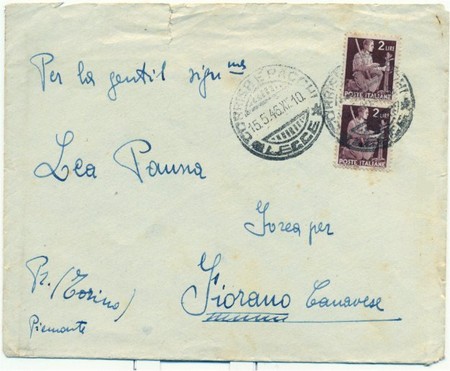 Per la gentil sign.ma
Lea Panna
Ivrea per
Fiorano Canavese
Pr. (Torino)
Piemonte
CORRISP. E PACCHI
15.5.46.XI.10
* LECCE *
2 LIRE
POSTE ITALIANE
2 LIRE
POSTE ITALIANE